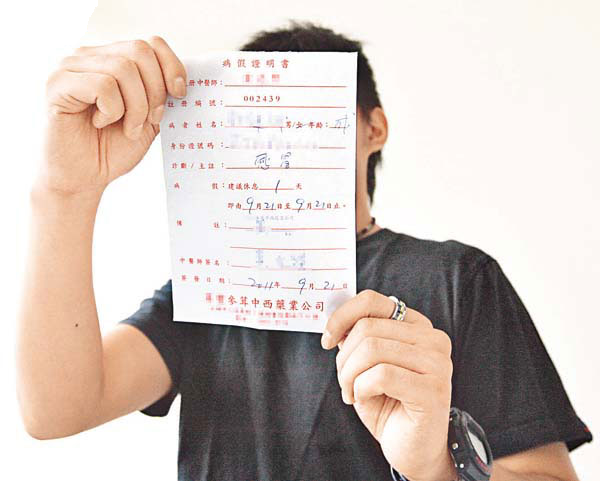 病假證明書
註冊中醫師：
註冊編號：002439
病者姓名：男/女 年齡：
身份證號碼：
診斷/主訴：感冒
病假：建議休息1天
即由9月21日至9月21日止。
備註：
中醫師簽名：
簽發日期：2011年9月21日
參茸中西藥業公司